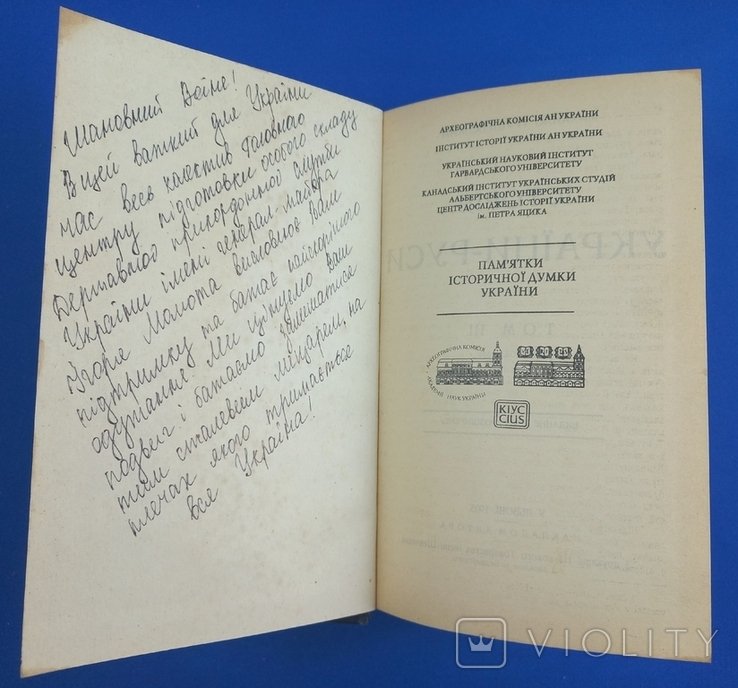 Шановний Воїне!
В цей важкий для України
час весь колектив Головного
центру підготовки особого складу
Державної прикордонної служби
України імені генерал-майора
Ігоря Момота висловлює Вам
підтримку та бажає найшвидшого
одужання. Ми цінуємо Ваш
подвиг і бажаємо залишатися
тим сталевим лицарем, на
плечах якого тримається
вся Україна!
АРХЕОГРАФІЧНА КОМІСІЯ АН УКРАЇНИ
ІНСТИТУТ ІСТОРІЇ УКРАЇНИ АН УКРАЇНИ
УКРАЇНСЬКИЙ НАУКОВИЙ ІНСТИТУТ
ГАРВАРДСЬКОГО УНІВЕРСИТЕТУ
КАНАДСЬКИЙ ІНСТИТУТ УКРАЇНСЬКИХ СТУДІЙ
АЛЬБЕРТСЬКОГО УНІВЕРСИТЕТУ
ЦЕНТР ДОСЛІДЖЕНЬ ІСТОРІЇ УКРАЇНИ
ім. ПЕТРА ЯЦИКА
ПАМ'ЯТКИ
ІСТОРИЧНОЇ ДУМКИ
УКРАЇНИ
АРХЕОГРАФІЧНА КОМІСІЯ
АКАДЕМІЇ НАУК УКРАЇНИ
КІУС
CIUS
VIOLITY